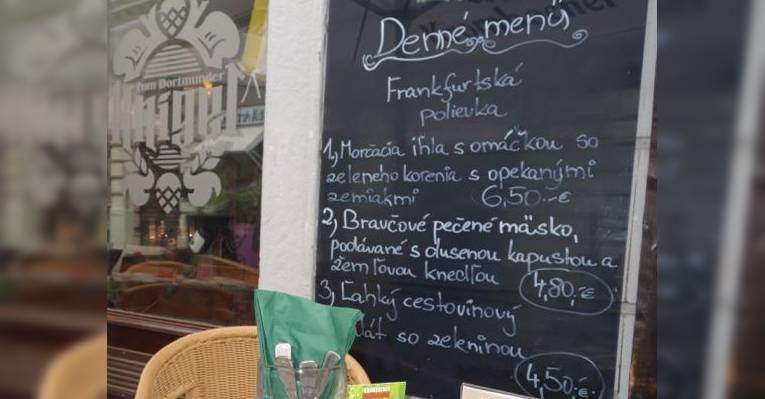 zum Dortmunder
Knight
Denné menü
Frankfurtská
polievka
1, Morčacia ihla s omáčkou so
zeleneho korenia s opekanými
zemiakmi 6,50.-€
2, Bravčové pečené mäsko,
podávané s dusenou kapustou a
žemľovou knedľou
4,80,-€
3, Ľahký cestovinový
so zeleninou
4,50,-€